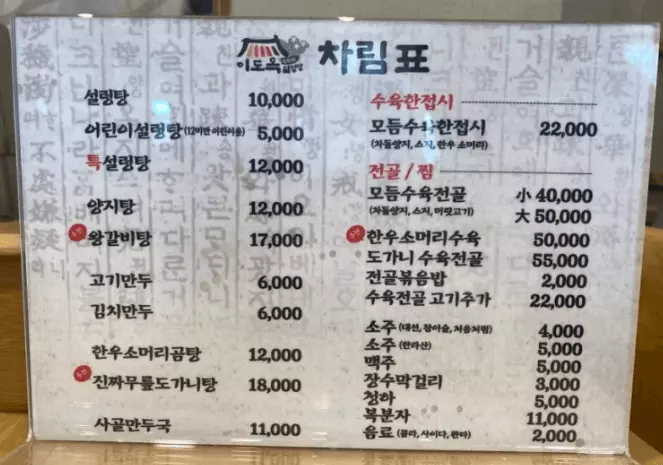 이도옥 차림표
설렁탕 10,000
어린이설렁탕 (12미만 어린이용) 5,000
특설렁탕 12,000
양지탕 12,000
왕갈비탕 17,000
고기만두 6,000
김치만두 6,000
한우소머리곰탕 12,000
진짜무릎도가니탕 18,000
사골만두국 11,000
수육한접시
모듬수육한접시 22,000
(차돌양지, 스지, 한우 소머리)
전골 / 찜
모듬수육전골 小 40,000
(차돌양지, 스지, 머릿고기) 大 50,000
한우소머리수육 50,000
도가니 수육전골 55,000
전골볶음밥 2,000
수육전골 고기추가 22,000
소주 (대선, 참이슬, 처음처럼) 4,000
소주 (한라산) 5,000
맥주 5,000
장수막걸리 3,000
청하 5,000
복분자 11,000
음료 (콜라, 사이다, 환타) 2,000